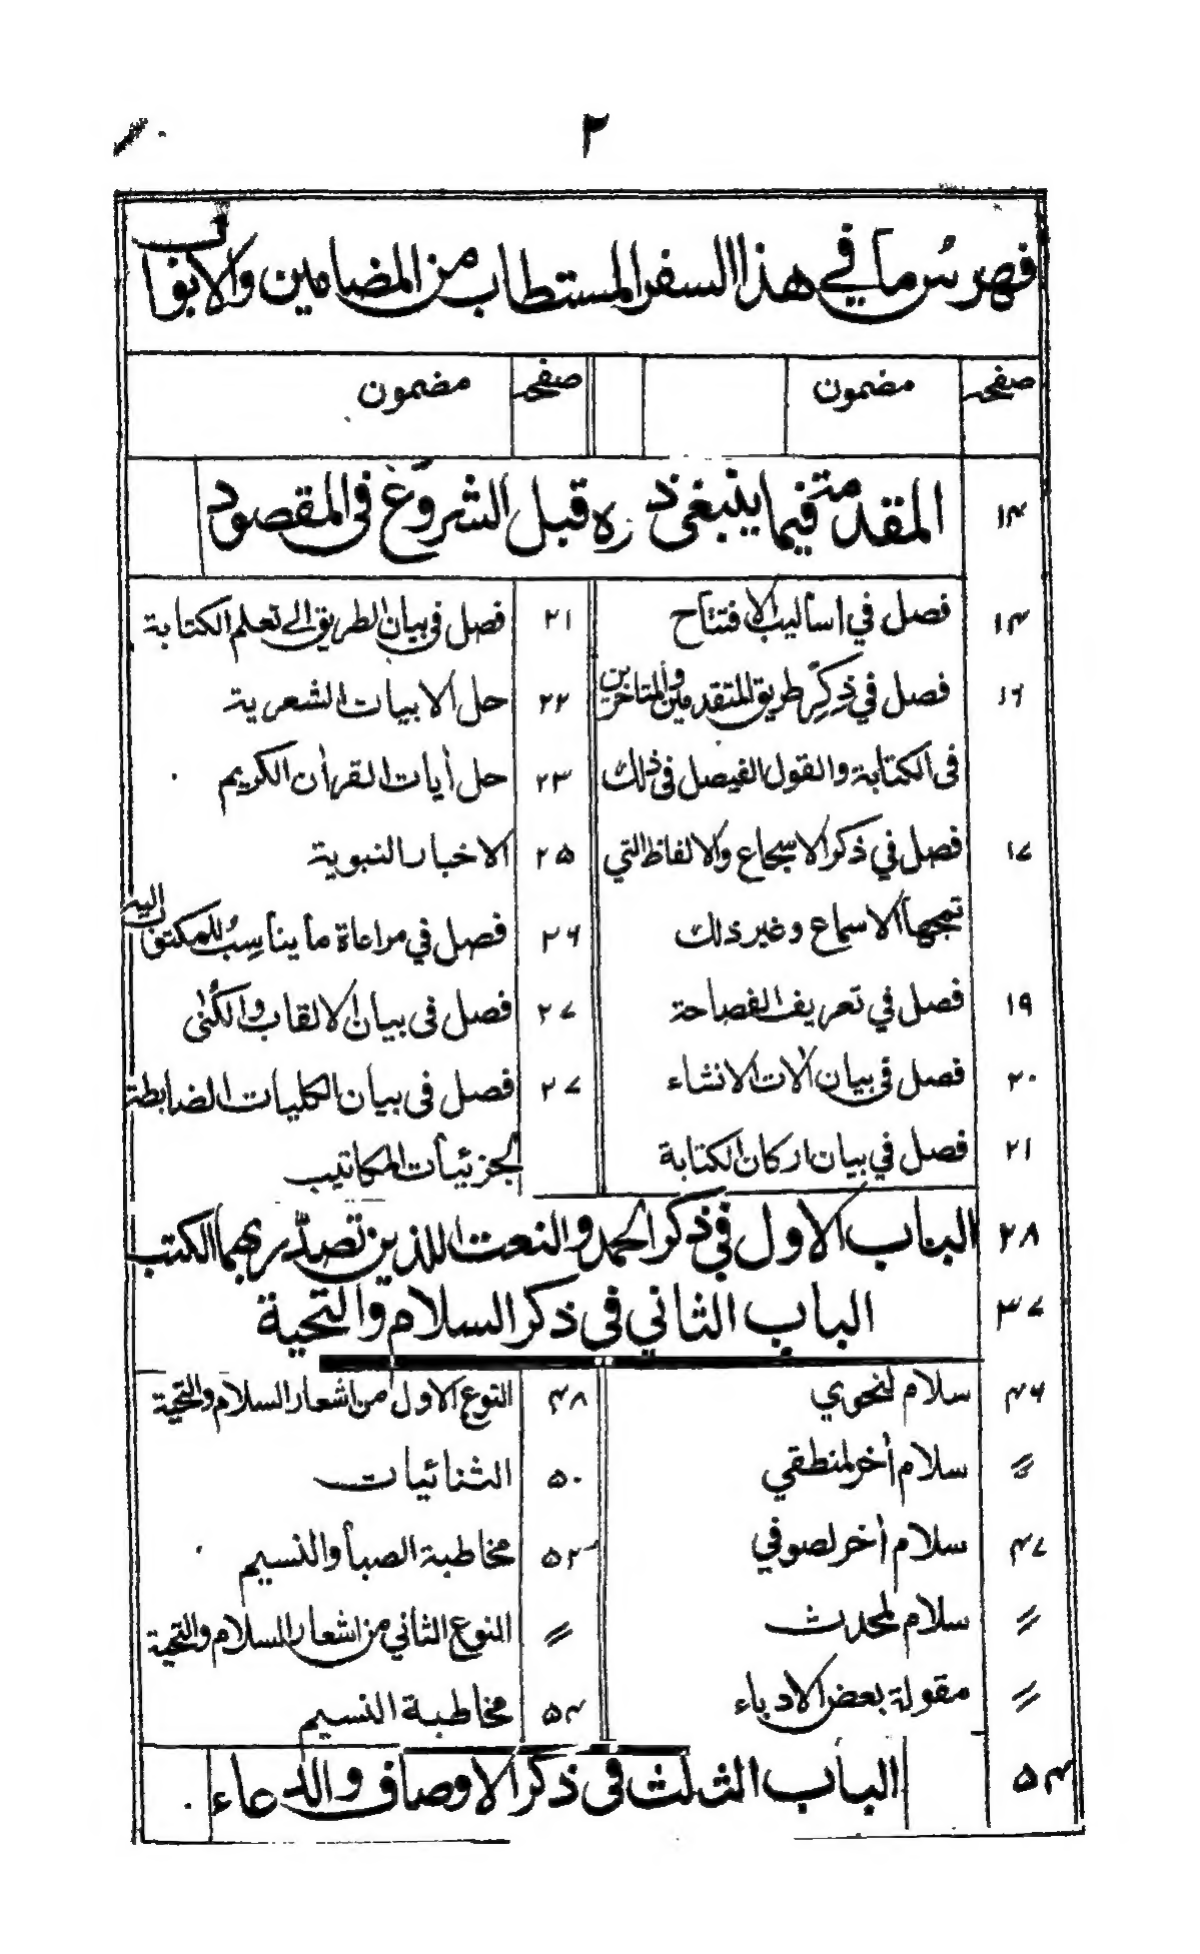 ٢
فهرس ما في هذا السفر المستطاب من المضامين والابواب
صفحه مضمون صفحه مضمون
١٣ المقدمة فيما ينبغي ذكره قبل الشروع في المقصود
١٣ فصل في اساليب الافتتاح
١٦ فصل في ذكر طريق المتقدمين والمتاخرين
في الكتابة والقول الفيصل في ذلك
١٧ فصل في ذكر الاسجاع والالفاظ التي
تمجها الاسماع وغير ذلك
١٩ فصل في تعريف الفصاحة
٢٠ فصل في بيان الات الانشاء
٢١ فصل في بيان اركان الكتابة
٢١ فصل في بيان الطريق الى تعلم الكتابة
٢٢ حل الابيات الشعرية
٢٣ حل أيات القرأن الكريم
٢٥ الاخبار النبوية
٢٦ فصل في مراعاة ما يناسب للمكتوب اليه
٢٧ فصل في بيان الالقاب والكنى
٢٧ فصل في بيان الكليات الضابطة
لجزئيات المكاتيب
٢٨ الباب الاول في ذكر الحمد والنعت اللذين تصدر بهما الكتب
٣٧ الباب الثاني في ذكر السلام والتحية
٤٦ سلام لنحوي
〃 سلام أخر لمنطقي
٤٧ سلام أخر لصوفي
〃 سلام لمحدث
〃 مقولة بعض الادباء
٤٨ النوع الاول من اشعار السلام والتحية
٥٠ الثنائيات
٥٢ مخاطبة الصبا والنسيم
〃 النوع الثاني من اشعار السلام والتحية
٥٤ مخاطبة النسيم
٥٤ الباب الثلث في ذكر الاوصاف والدعاء